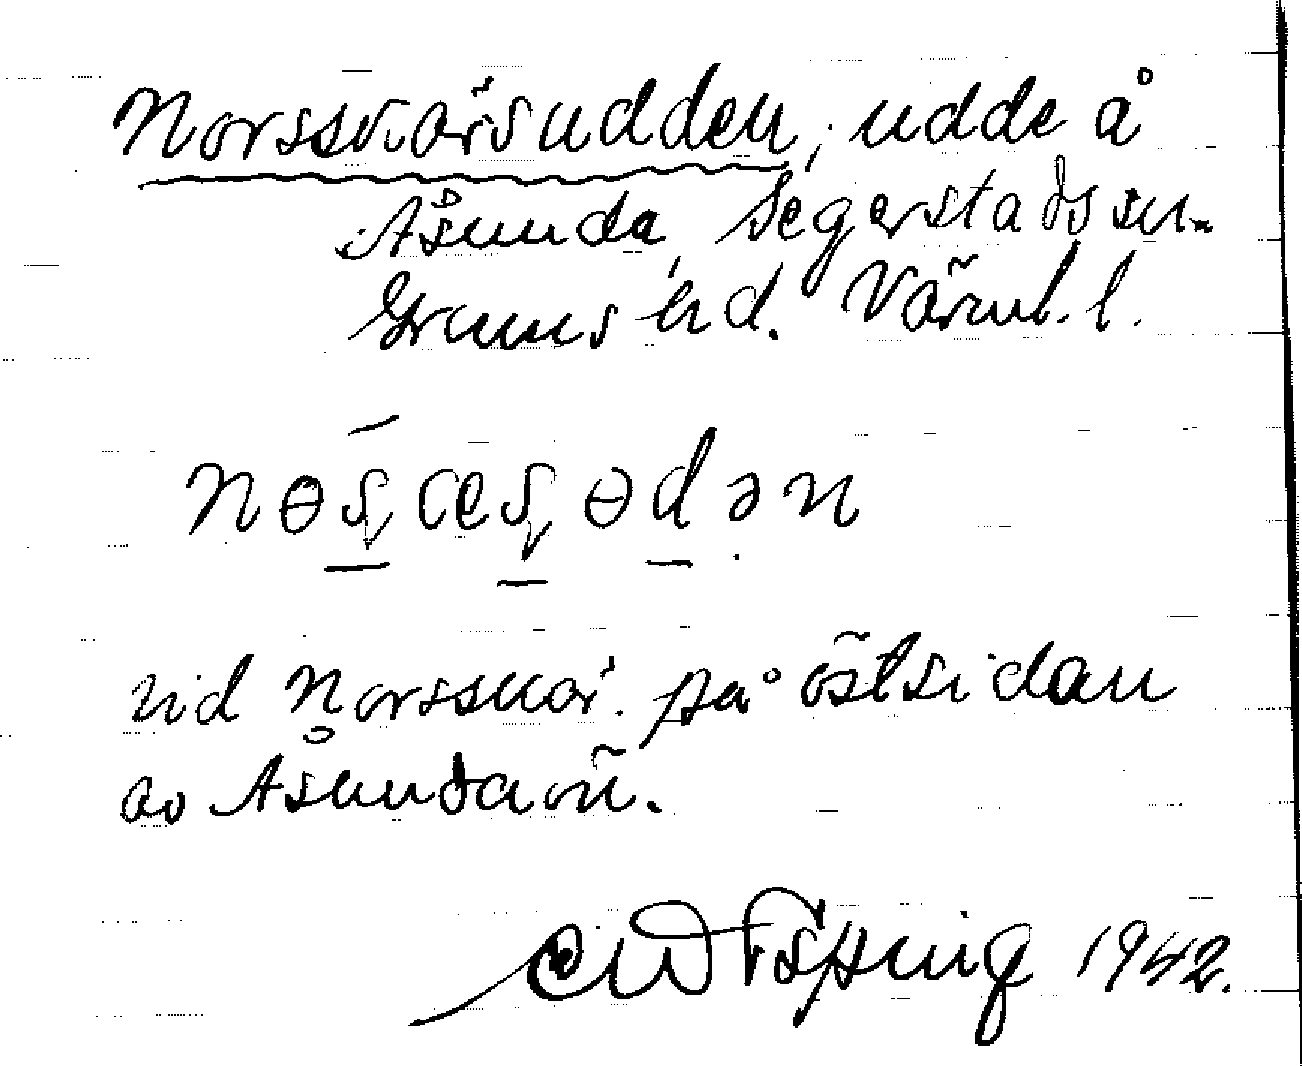 Norssvärsudden, udde å
Åsunda, Segerstads sn.
Grums hd. Värml. l.
nɵs væs ɵdən
vid Norssvär. på östsidan
av Åsundaön.
1942.